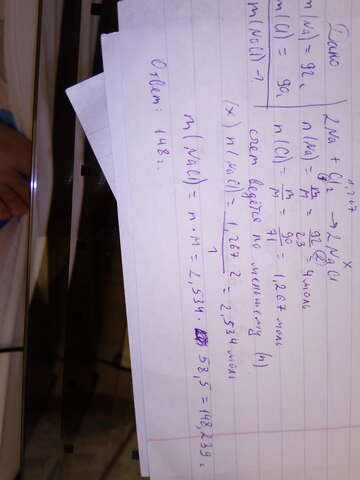 Дано
m(Na) = 92г
m(Cl) = 90г
m(NaCl) - ?
1,267 x
2Na + Cl2 → 2NaCl
n(Na) = m/M = 92/23 = 4 моль
n(Cl) = m/M = 90/71 = 1,267 моль
счет ведётся по меньшему (n)
(x) n(NaCl) = 1,267 · 2 / 1 = 2,534 моль
m(NaCl) = n · M = 2,534 · 58,5 = 148,239г.
Ответ: 148г.